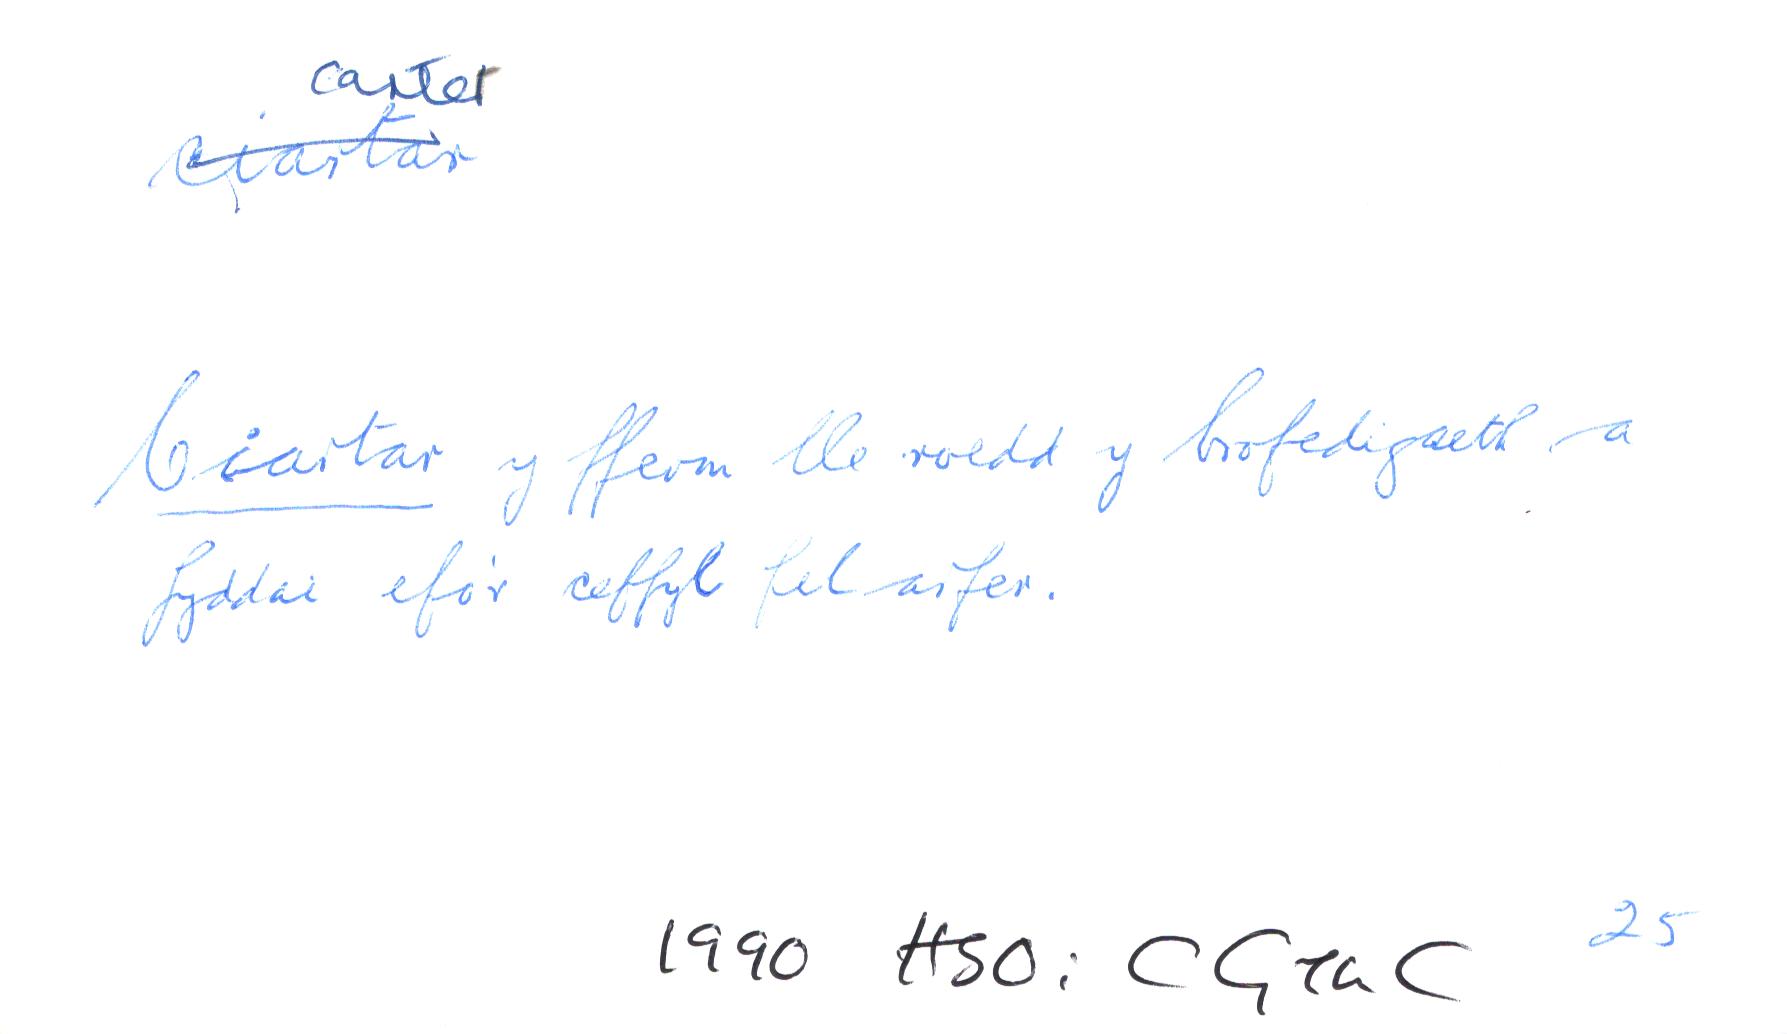 carter
ciartar
Ciartar y fferm lle roedd y brofedigaeth a
fyddai efo'r ceffyl fel arfer.
1990 HSO: CGYaC 25